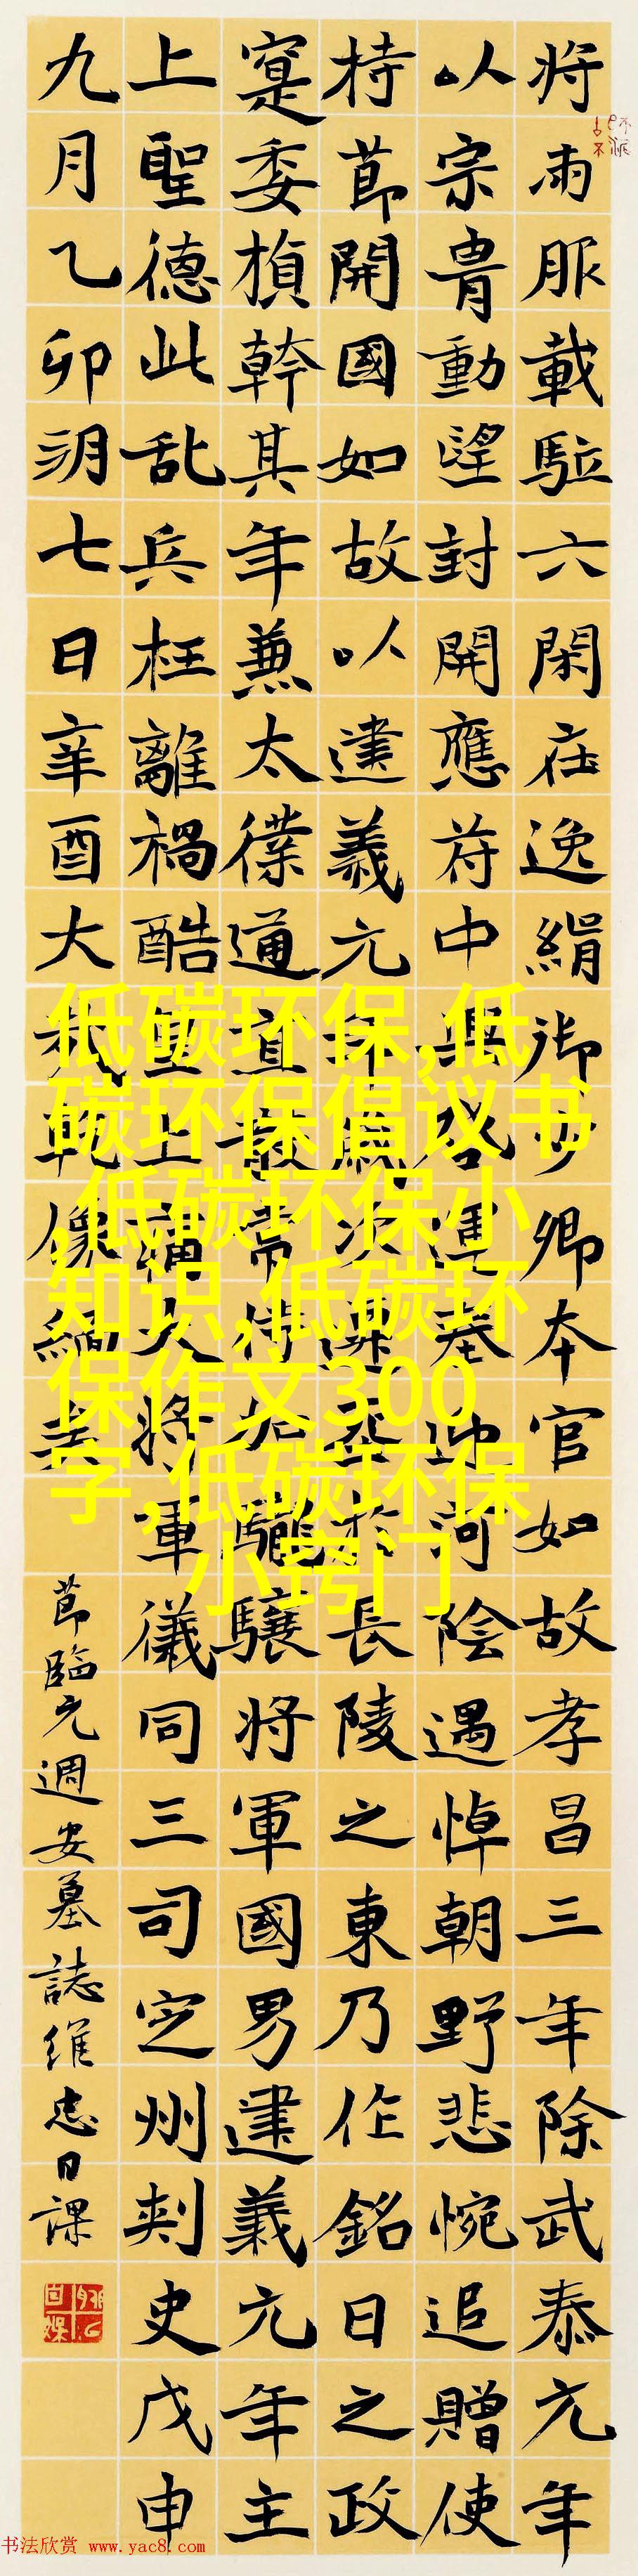 将雨服載駈六閑在逸絹御少卿本官如故孝昌三年除武泰元年
以宗胄動望封開應苻中興啓運奉迎河陰遇悼朝野悲惋追贈使
持節開國如故以建義元年歲次
於長陵之東乃作銘曰之政
寔委楨幹其年兼太僕通直散常侍加驪驤將軍國男建義元年主
上聖德此乱兵枉離禍酷主上
大將軍儀同三司定州刾史戊申
九月乙卯朔七日辛酉大
像緬
節臨元週安墓誌維忠日課
低碳环保,低
碳环保倡议书
,低碳环保小
知识,低碳环
保作文300
字,低碳环保
小窍门
书法欣赏 www.yac8.com